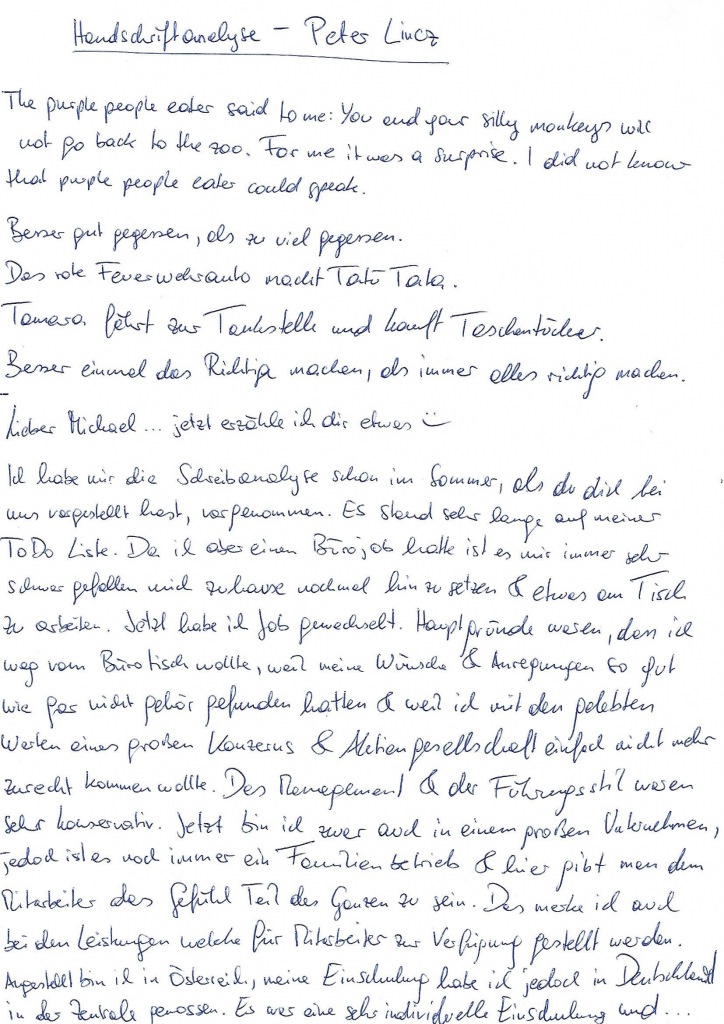 Handschriftanalyse – Peter Lincz
The purple people eater said to me: You and your silly monkeys will
not go back to the zoo. For me it was a surprise. I did not know
that purple people eater could speak.
Besser gut gegessen, als zu viel gegessen.
Das rote Feuerwehrauto macht Tatü Tata.
Tamara fährt zur Tankstelle und kauft Taschentücher.
Besser einmal das Richtige machen, als immer alles richtig machen.
Lieber Michael... jetzt erzähle ich dir etwas ☺
Ich habe mir die Schreibanalyse schon im Sommer, als du dich bei
uns vorgestellt hast, vorgenommen. Es stand sehr lange auf meiner
ToDo Liste. Da ich aber einen Bürojob hatte ist es mir immer sehr
schwer gefallen mich zuhause nochmal hin zu setzen & etwas am Tisch
zu arbeiten. Jetzt habe ich Job gewechselt. Hauptgründe waren, dass ich
weg vom Bürotisch wollte, weil meine Wünsche & Anregungen so gut
wie gar nicht gehör gefunden hatten & weil ich mit den gelebten
Werten eines großen Konzerns & Aktiengesellschaft einfach nicht mehr
zurecht kommen wollte. Das Management & der Führungsstil waren
sehr konservativ. Jetzt bin ich zwar auch in einem großen Unternehmen,
jedoch ist es noch immer ein Familienbetrieb & hier gibt man dem
Mitarbeiter das Gefühl Teil des Ganzen zu sein. Das merke ich auch
bei den Leistungen welche für Mitarbeiter zur Verfügung gestellt werden.
Angestellt bin ich in Österreich, meine Einschulung habe ich jedoch in Deutschland
in der Zentrale genossen. Es war eine sehr individuelle Einschulung und...